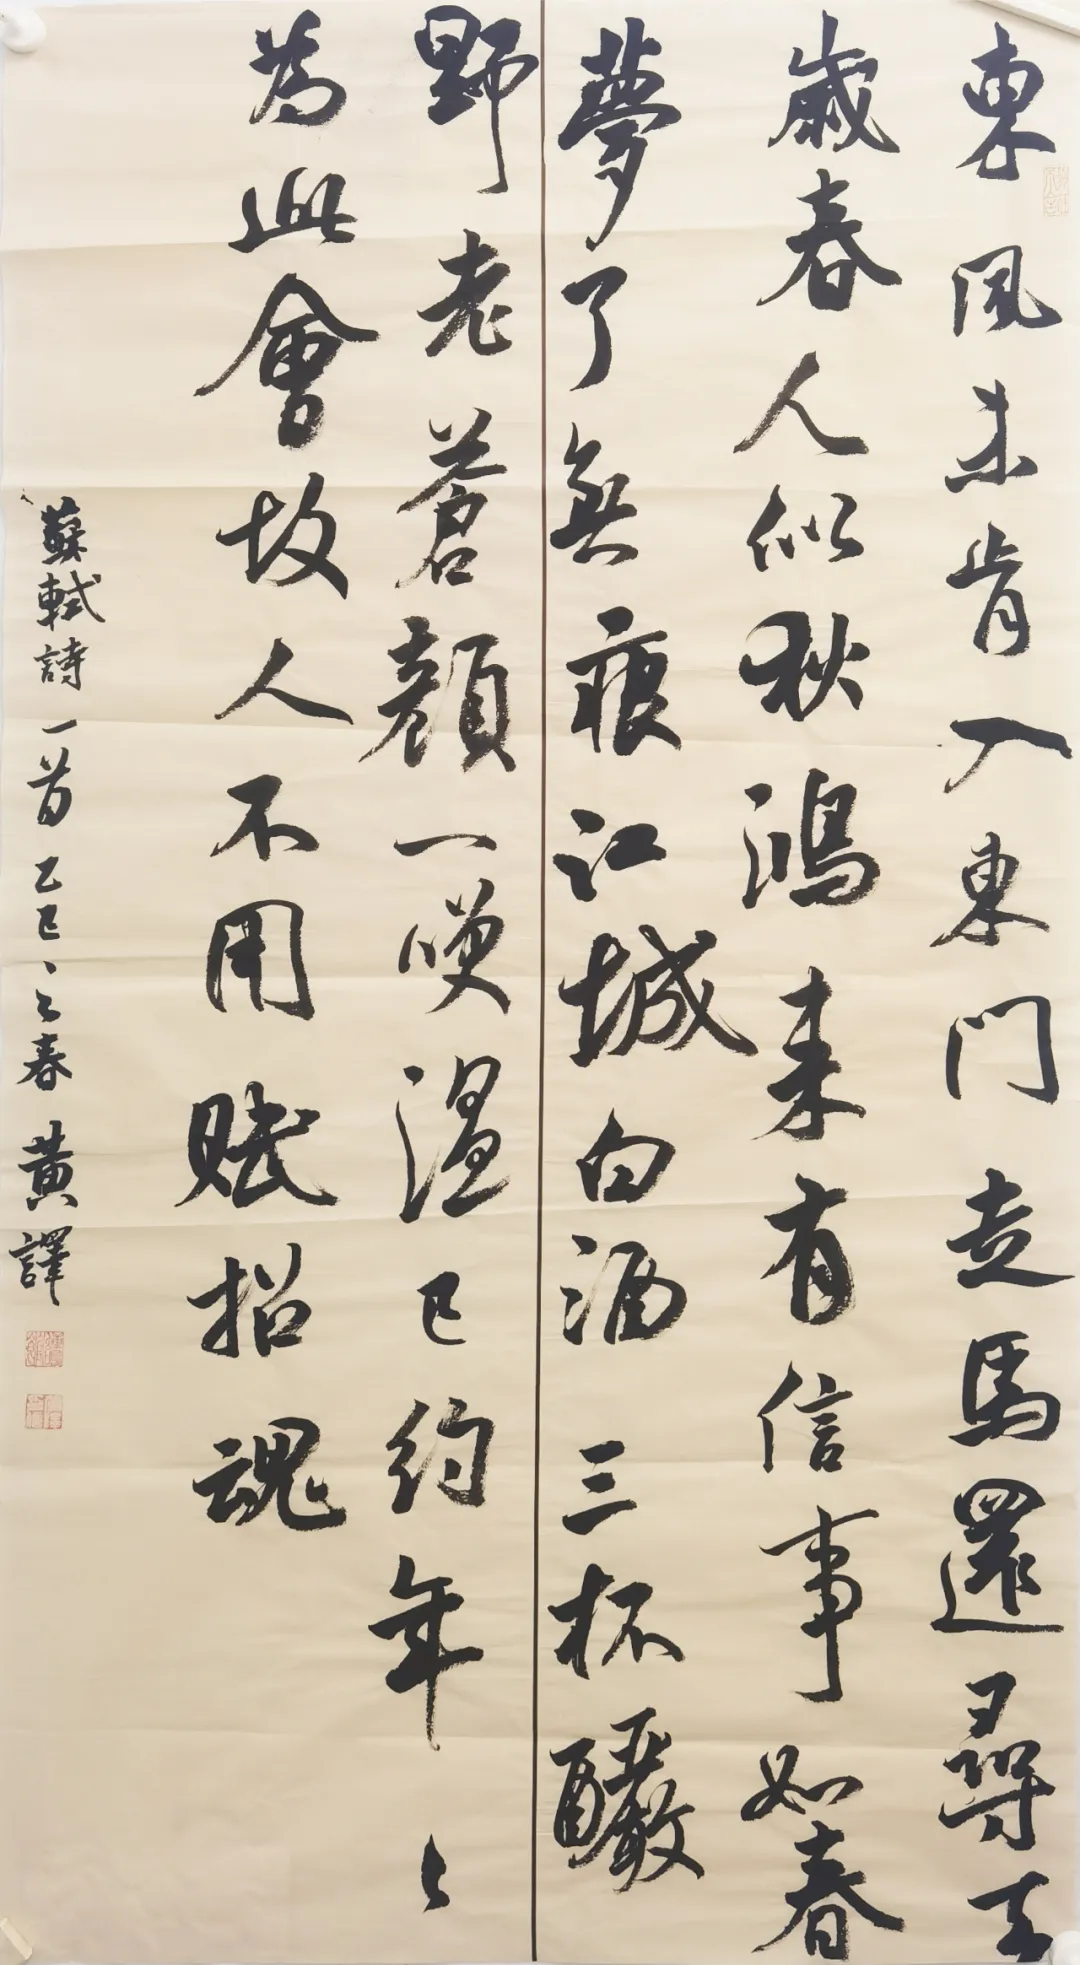 東風未肯入東門走馬還尋去
歲春人似秋鴻來有信事如春
夢了無痕江城白酒三杯釅
野老蒼顏一咲溫已約年々
為此會故人不用賦招魂
蘇軾詩一首乙巳之春黃譯